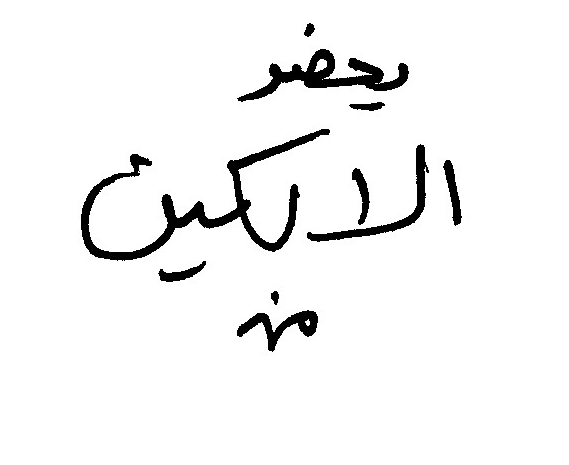 يحضر
الالكين
من